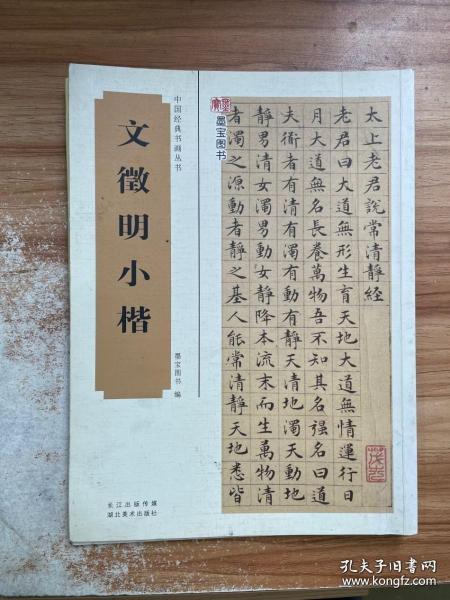 中国经典书画丛书
文徵明小楷
墨宝图书 编
长江出版传媒
湖北美术出版社
墨宝图书
太上老君說常清靜經
老君曰大道無形生育天地大道無情運行日
月大道無名長養萬物吾不知其名强名曰道
夫衜者有清有濁有動有靜天清地濁天動地
靜男清女濁男動女靜降本流末而生萬物清
者濁之源動者靜之基人能常清靜天地悉皆
孔夫子旧书网
www.kongfz.com